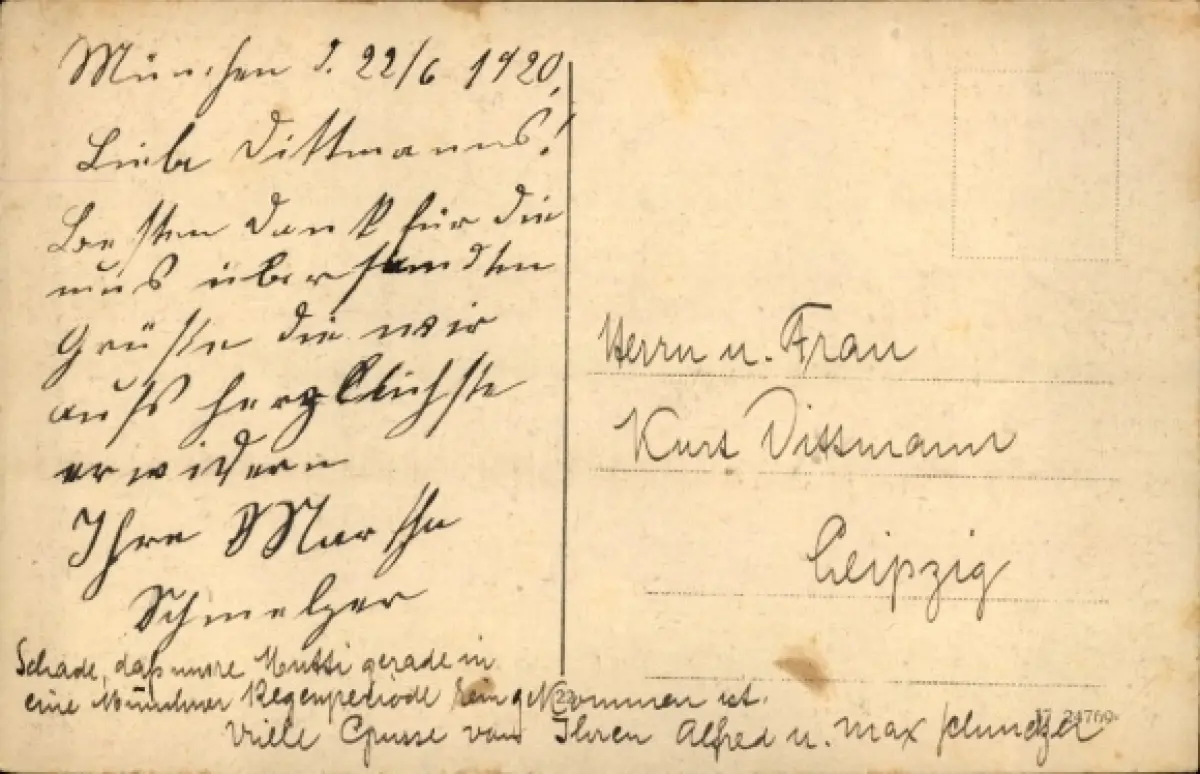 München d. 22/6 1920,
Liebe Dittmanns!
Besten Dank für die
uns übersandten
Grüße die wir
aufs herzlichste
erwidern
Ihre Martha
Schmelzer
Schade, daß unsre Mutti gerade in
eine Münchner Regenperiode hereingekommen ist.
Viele Grüsse von Ihren Alfred u. Max
Herrn u. Frau
Kurt Dittmann
Leipzig
24760